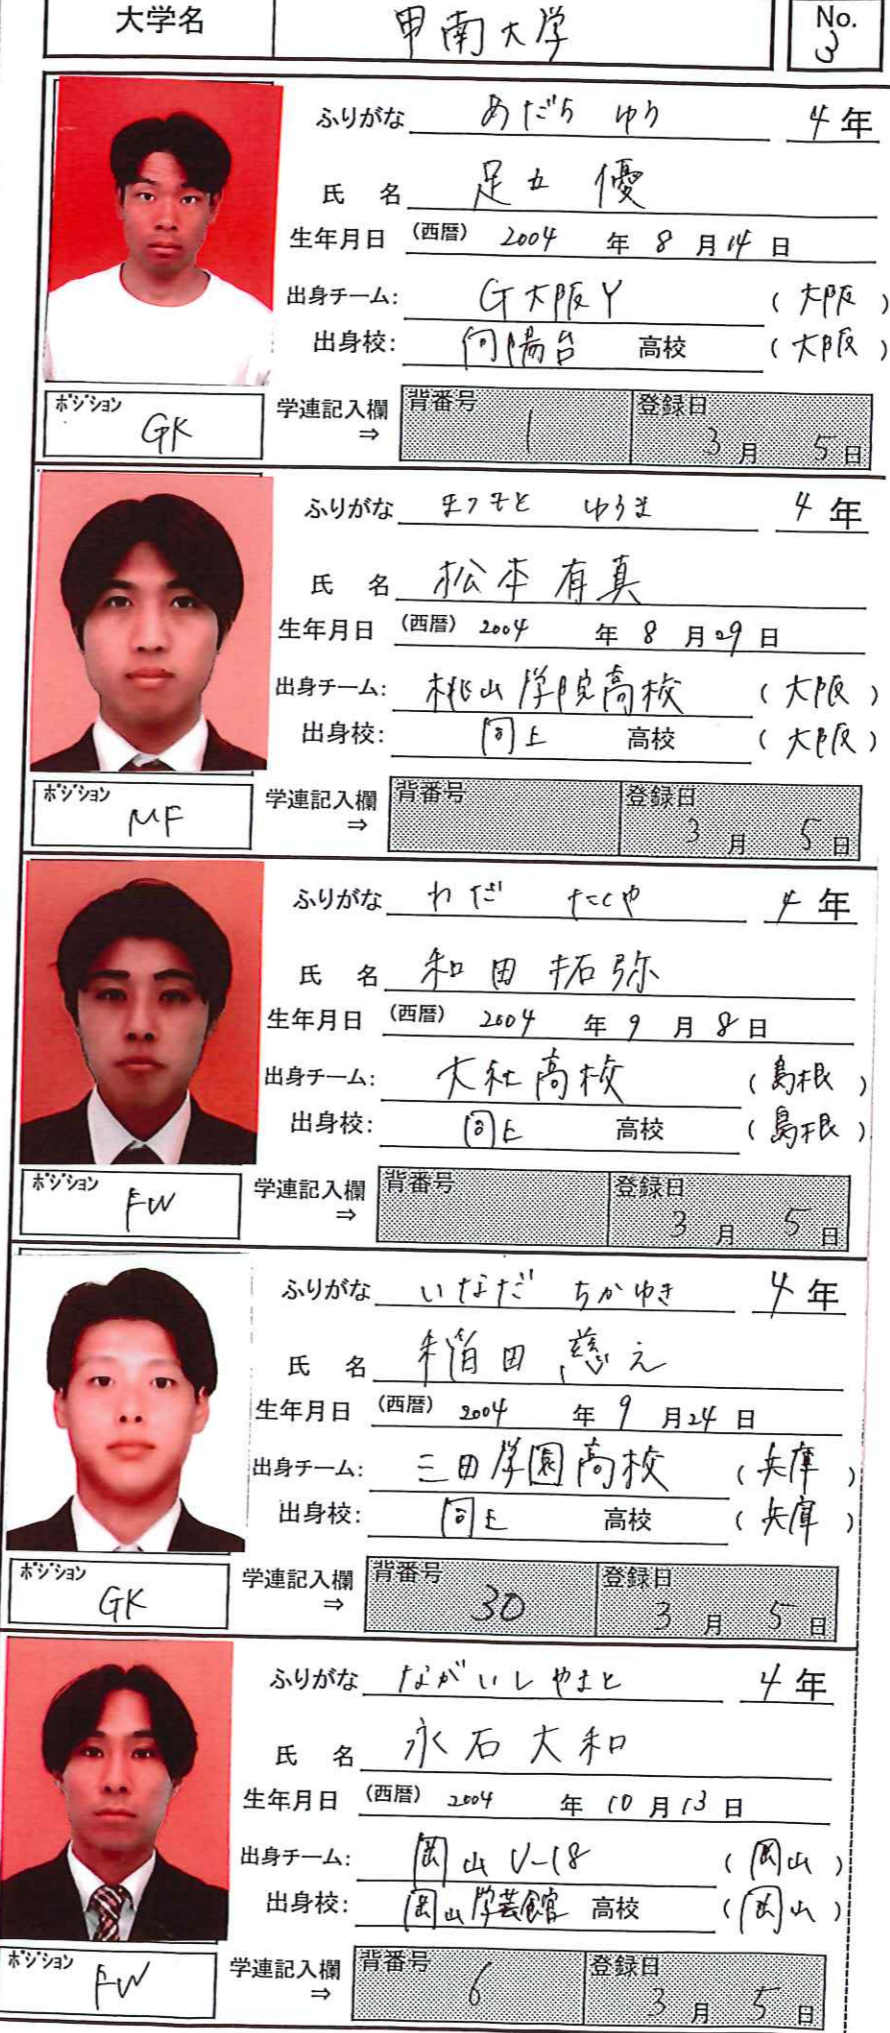 大学名 甲南大学 No. 3
ふりがな あだち ゆう 4年
氏 名 足立 優
生年月日 (西暦) 2004 年 8 月 14 日
出身チーム: G大阪Y (大阪)
出身校: 向陽台 高校 (大阪)
ポジション GK 学連記入欄 ⇒ 背番号 1 登録日 3月 5日
ふりがな まつもと ゆうま 4年
氏 名 松本有真
生年月日 (西暦) 2004 年 8 月 29 日
出身チーム: 桃山学院高校 (大阪)
出身校: 同上 高校 (大阪)
ポジション MF 学連記入欄 ⇒ 背番号 登録日 3月 5日
ふりがな わだ たくや 4年
氏 名 和田拓弥
生年月日 (西暦) 2004 年 9 月 8 日
出身チーム: 大社高校 (島根)
出身校: 同上 高校 (島根)
ポジション FW 学連記入欄 ⇒ 背番号 登録日 3月 5日
ふりがな いなだ ちかゆき 4年
氏 名 稲田 慈之
生年月日 (西暦) 2004 年 9 月 24 日
出身チーム: 三田学園高校 (兵庫)
出身校: 同上 高校 (兵庫)
ポジション GK 学連記入欄 ⇒ 背番号 30 登録日 3月 5日
ふりがな ながいし やまと 4年
氏 名 永石大和
生年月日 (西暦) 2004 年 10 月 13 日
出身チーム: 岡山U-18 (岡山)
出身校: 岡山学芸館 高校 (岡山)
ポジション FW 学連記入欄 ⇒ 背番号 6 登録日 3月 5日